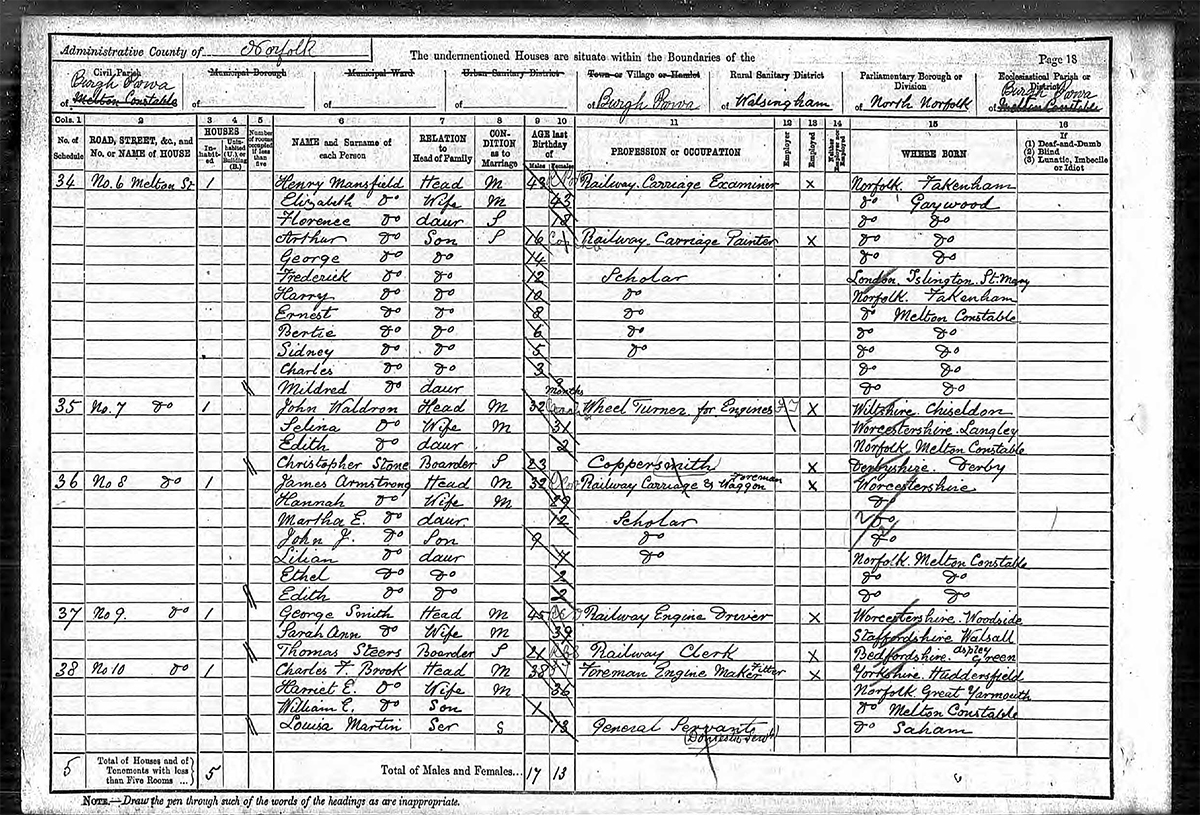 Administrative County of Norfolk
The undermentioned Houses are situate within the Boundaries of the
Page 18
Civil Parish Municipal Borough Municipal Ward Urban Sanitary District Town or Village or Hamlet Rural Sanitary District Parliamentary Borough or Division Ecclesiastical Parish or District
of Burgh Parva Melton Constable of of of of Burgh Parva of Walsingham of North Norfolk of Burgh Parva Melton Constable
Cols. 1 2 3 4 5 6 7 8 9 10 11 12 13 14 15 16
No. of Schedule ROAD, STREET, &c., and No. or NAME of HOUSE HOUSES Inhabited Uninhabited (U.) or Building (B.) Number of rooms occupied if less than five NAME and Surname of each Person RELATION to Head of Family CONDITION as to Marriage AGE last Birthday of Males Females PROFESSION or OCCUPATION Employer Employed Neither employer nor employed WHERE BORN If (1) Deaf-and-Dumb (2) Blind (3) Lunatic, Imbecile or Idiot
34 No. 6 Melton St 1 Henry Mansfield Head M 43 Railway Carriage Examiner X Norfolk. Fakenham
Elizabeth Do Wife M 43 Do Gaywood
Florence Do daur S 18 Do Do
Arthur Do Son S 16 Railway Carriage Painter X Do Do
George Do Do 14 Do Do
Frederick Do Do 12 Scholar London. Islington. St. Mary
Harry Do Do 10 Do Norfolk. Fakenham
Ernest Do Do 8 Do Do Melton Constable
Bertie Do Do 6 Do Do Do
Sidney Do Do 5 Do Do Do
Charles Do Do 3 Do Do
Mildred Do daur months Do Do
35 No. 7 Do 1 John Waldron Head M 32 Wheel Turner for Engines X Wiltshire. Chiseldon
Selina Do Wife M 31 Worcestershire. Langley
Edith Do daur 2 Norfolk Melton Constable
Christopher Stone Boarder S 23 Coppersmith X Derbyshire. Derby
36 No 8 Do 1 James Armstrong Head M 32 Railway Carriage & Waggon Foreman X Worcestershire
Hannah Do Wife M 29 Do
Martha E. Do daur 12 Scholar Do
John J. Do Son 9 Do Do
Lilian Do daur 4 Do Norfolk. Melton Constable
Ethel Do Do 2 Do Do
Edith Do Do 2 Do Do
37 No 9. Do 1 George Smith Head M 45 Railway Engine Driver X Worcestershire. Woodside
Sarah Ann Do Wife M 39 Staffordshire Walsall
Thomas Steers Boarder S 21 Railway Clerk X Bedfordshire. Aspley Green
38 No 10 Do 1 Charles F. Brook Head M 38 Foreman Engine Maker Fitter X Yorkshire. Huddersfield
Harriet E. Do Wife M 36 Norfolk Great Yarmouth
William C. Do Son 1 Do Melton Constable
Louisa Martin Ser S 13 General Servant Do Saham
(Domestic Servt)
5 Total of Houses and of Tenements with less than Five Rooms ... 5 Total of Males and Females... 17 13
NOTE.—Draw the pen through such of the words of the headings as are inappropriate.